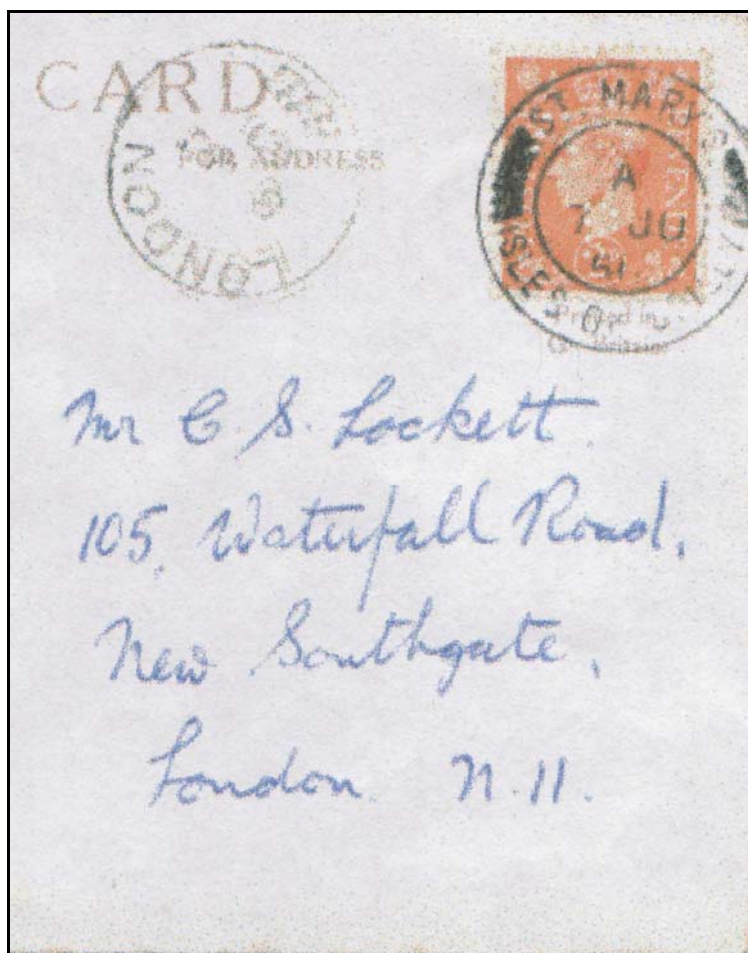 CARD
FOR ADDRESS
LONDON
ST. MARYS
ISLES O
A
7 JU
51
Printed in
Mr C. S. Lockett.
105, Waterfall Road,
New Southgate,
London N. 11.